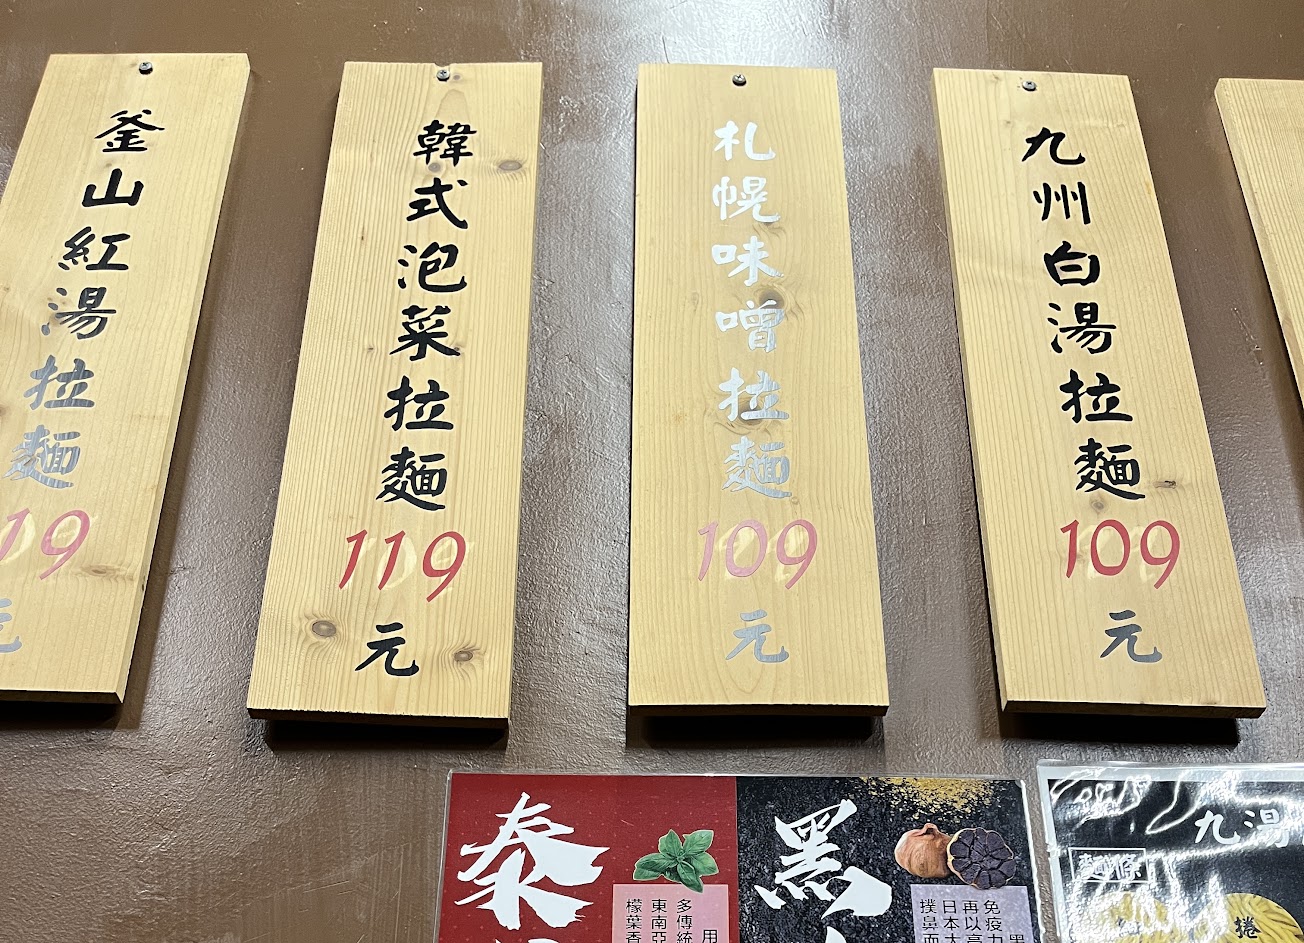 釜山紅湯拉麵
19
元
韓式泡菜拉麵
119
元
札幌味噌拉麵
109
元
九州白湯拉麵
109
元
泰
用
多傳統
東南亞
檬葉香
黑
黑
免疫力
再以高
日本大
撲鼻而
九湯
麵條
捲